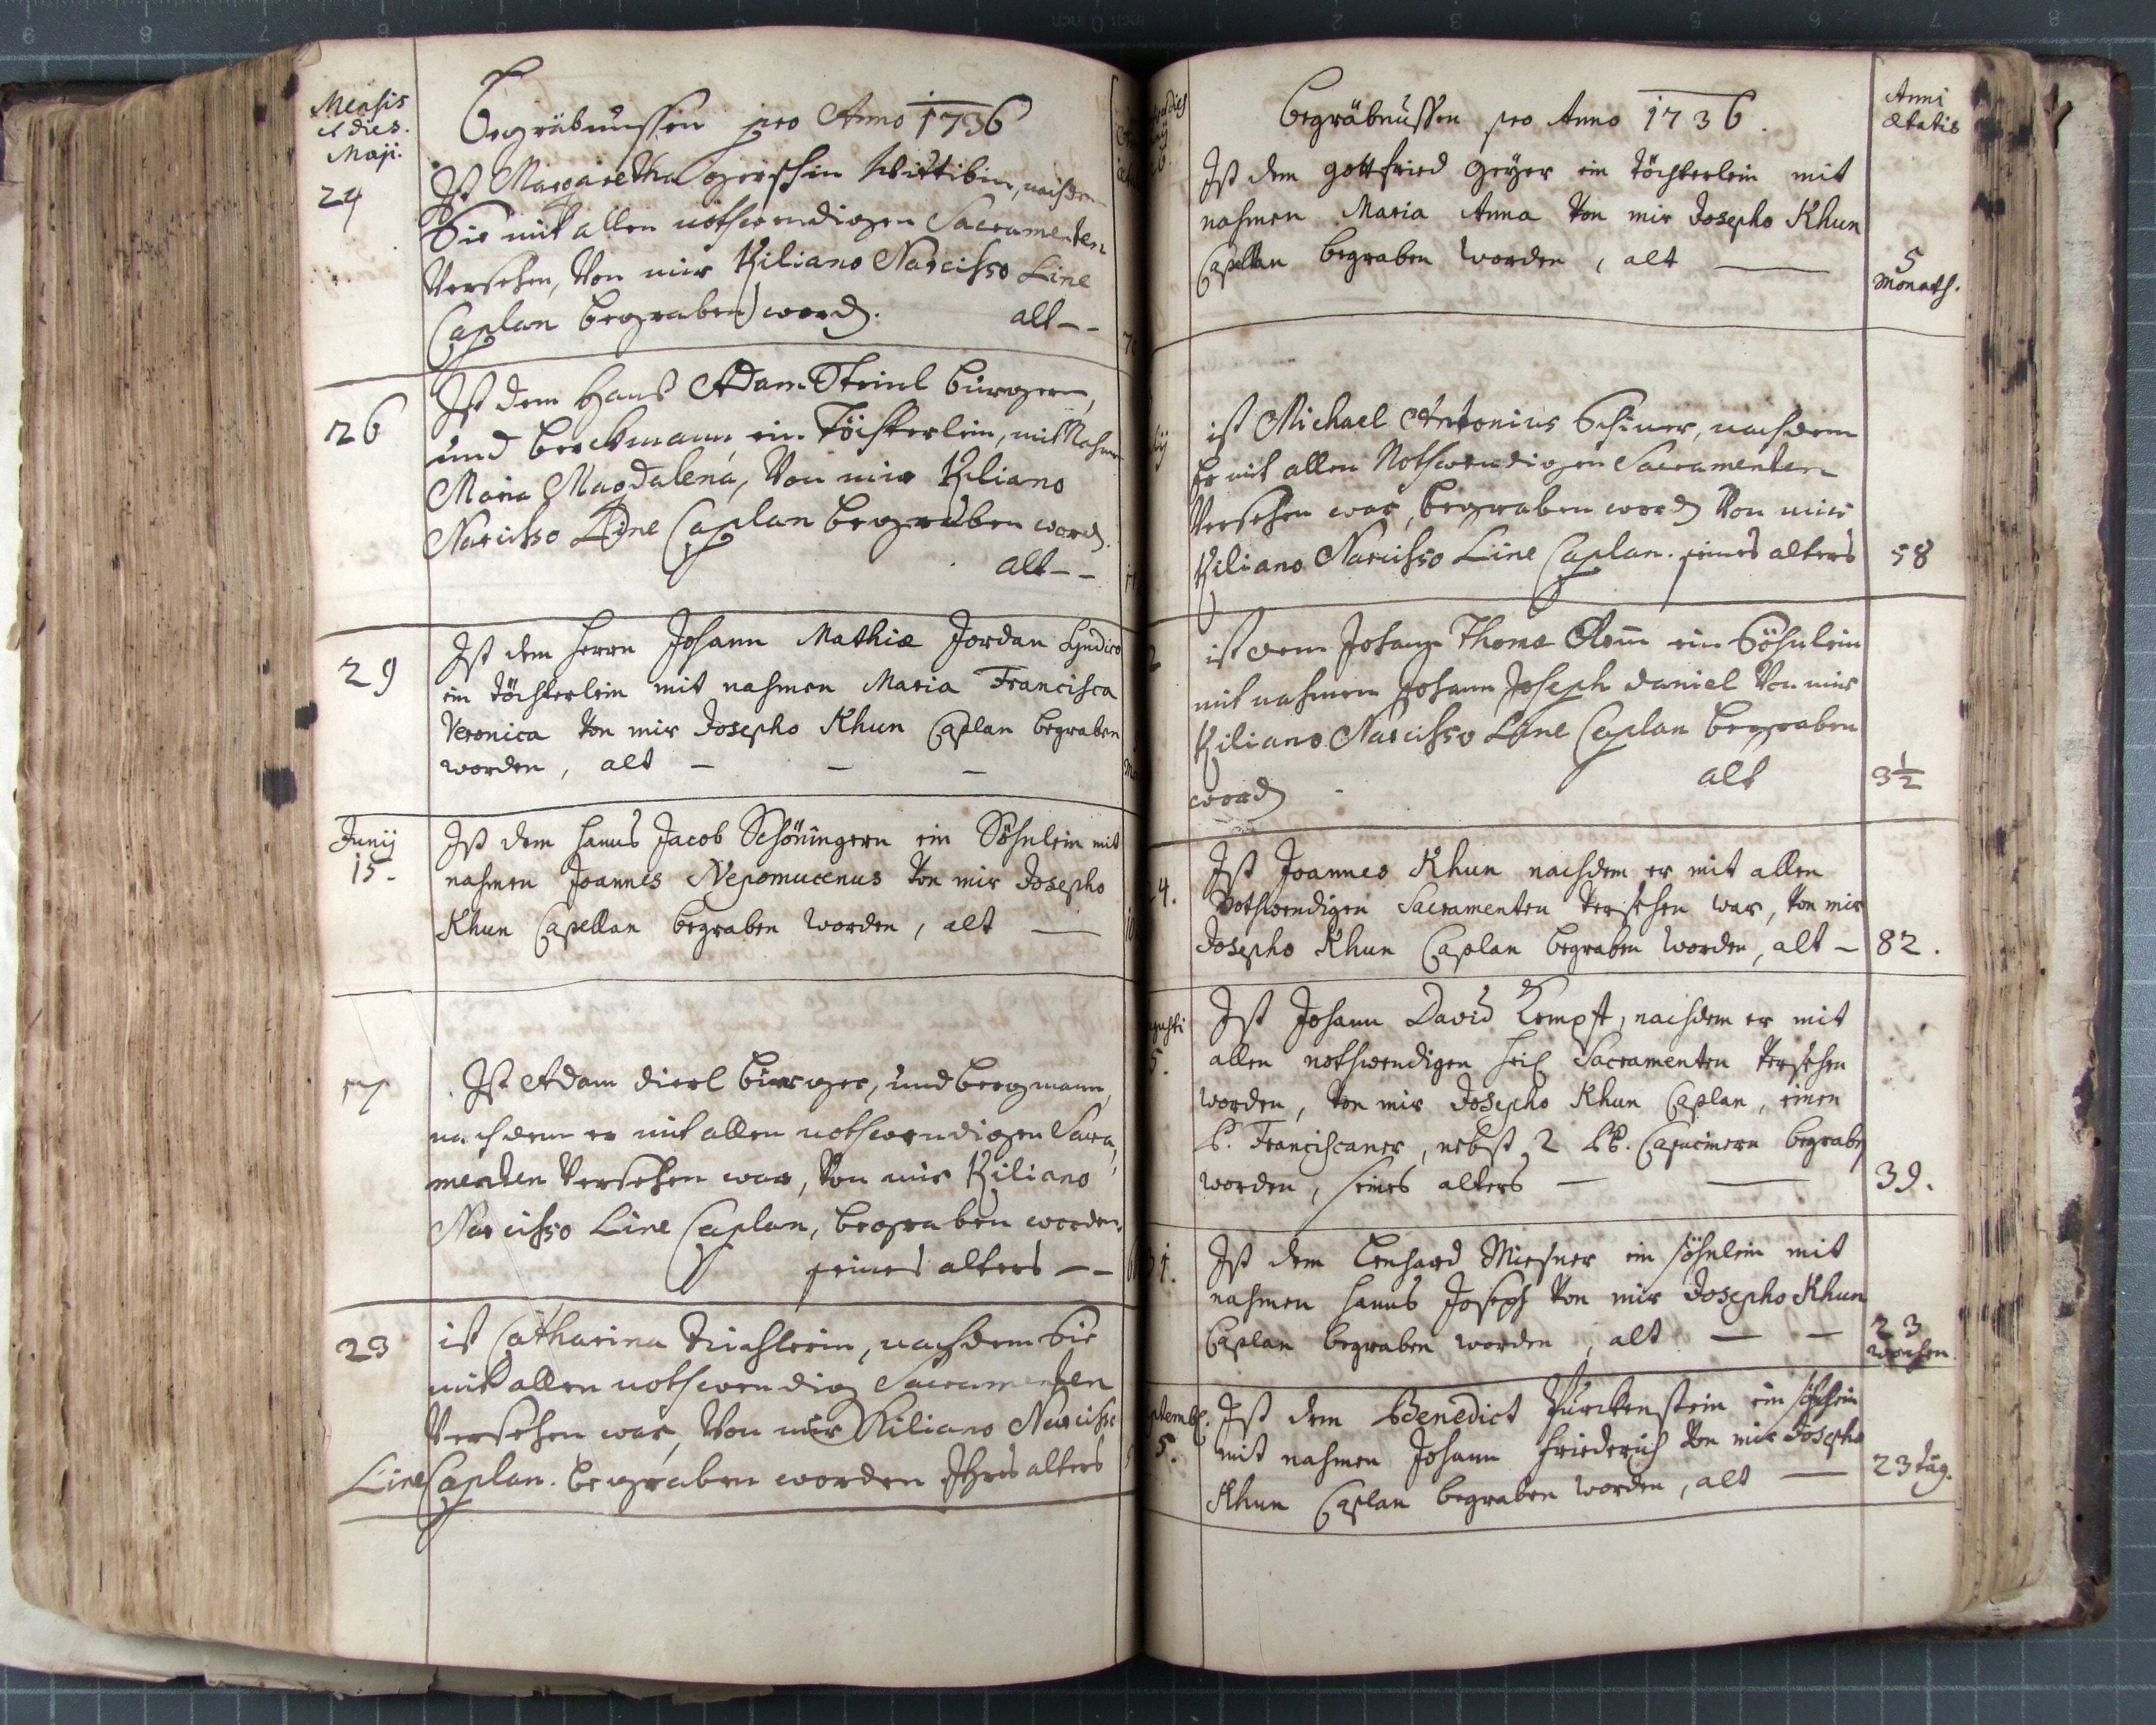 Mensis
et dies.
Maji.
Begräbnussen pro Anno 1736
24
Ist Margaretha wittibin, nachdem
Sie mit allen nothwendigen Sacramenten
Versehen, Von mir Kiliano Narcisso Line
Caplan begraben word. alt - -
26
Ist dem Hanß Adam Steinl burgern,
und berckmann ein Töchterlein, mit Nahmen
Maria Magdalena, Von mir Kiliano
Narcisso Line Caplan begraben word.
alt - -
29
Ist dem Herrn Johann Mathiæ Jordan Syndico
ein töchterlein mit nahmen Maria Francisca
Veronica Von mir Josepho Khun Caplan begraben
worden, alt - - -
Junij
15.
Ist dem Hanns Jacob Schöningern ein Söhnlein mit
nahmen Joannes Nepomucenus Von mir Josepho
Khun Capellan begraben worden, alt —
17
Ist Adam dierl burger, und bergmann,
nachdem er mit allen nothwendigen Sacra,
menten Versehen war, Von mir Kiliano
Narcisso Line Caplan, begraben worden.
seines alters - -
23
ist Catharina, nachdem Sie
mit allen nothwendig Sacramenten
Versehen war, Von mir Kiliano Narcisso
Line Caplan. begraben worden Ihres alters
Begräbnussen pro Anno 1736.
Anni
ætatis
Ist dem gottfried geyer ein töchterlein mit
nahmen Maria Anna Von mir Josepho Khun
Capellan begraben worden, alt —
5
Monath.
ist Michael Antonius Schiner, nachdem
Er mit allen Nothwendigen Sacramenten
Versehen war, begraben word Von mir
Kiliano Narcisso Line Caplan. seines alters 58
2
ist dem Johann Thomæ ein Söhnlein
mit nahmen Johann Joseph Daniel Von mir
Kiliano Narcisso Line Caplan begraben
word alt 3 1/2
24.
Ist Joannes Khun nachdem er mit allen
Nothwendigen Sacramenten Versehen war, Von mir
Josepho Khun Caplan begraben worden, alt - 82.
5.
Ist Johann David Kempft, nachdem er mit
allen nothwendigen heil Sacramenten Versehen
worden, Von mir Josepho Khun Caplan, einen
P. Franciscaner, nebst 2 PP. Capucinern begraben
worden, seines alters — — 39.
31.
Ist dem Lenhard Miesner ein söhnlein mit
nahmen Hanns Joseph Von mir Josepho Khun
Caplan begraben worden, alt — —
23
wochen.
5.
Ist dem Benedict Pürckenstein ein söhnlein
mit nahmen Johann Friederich Von mir Josepho
Khun Caplan begraben worden, alt — 23 täg.